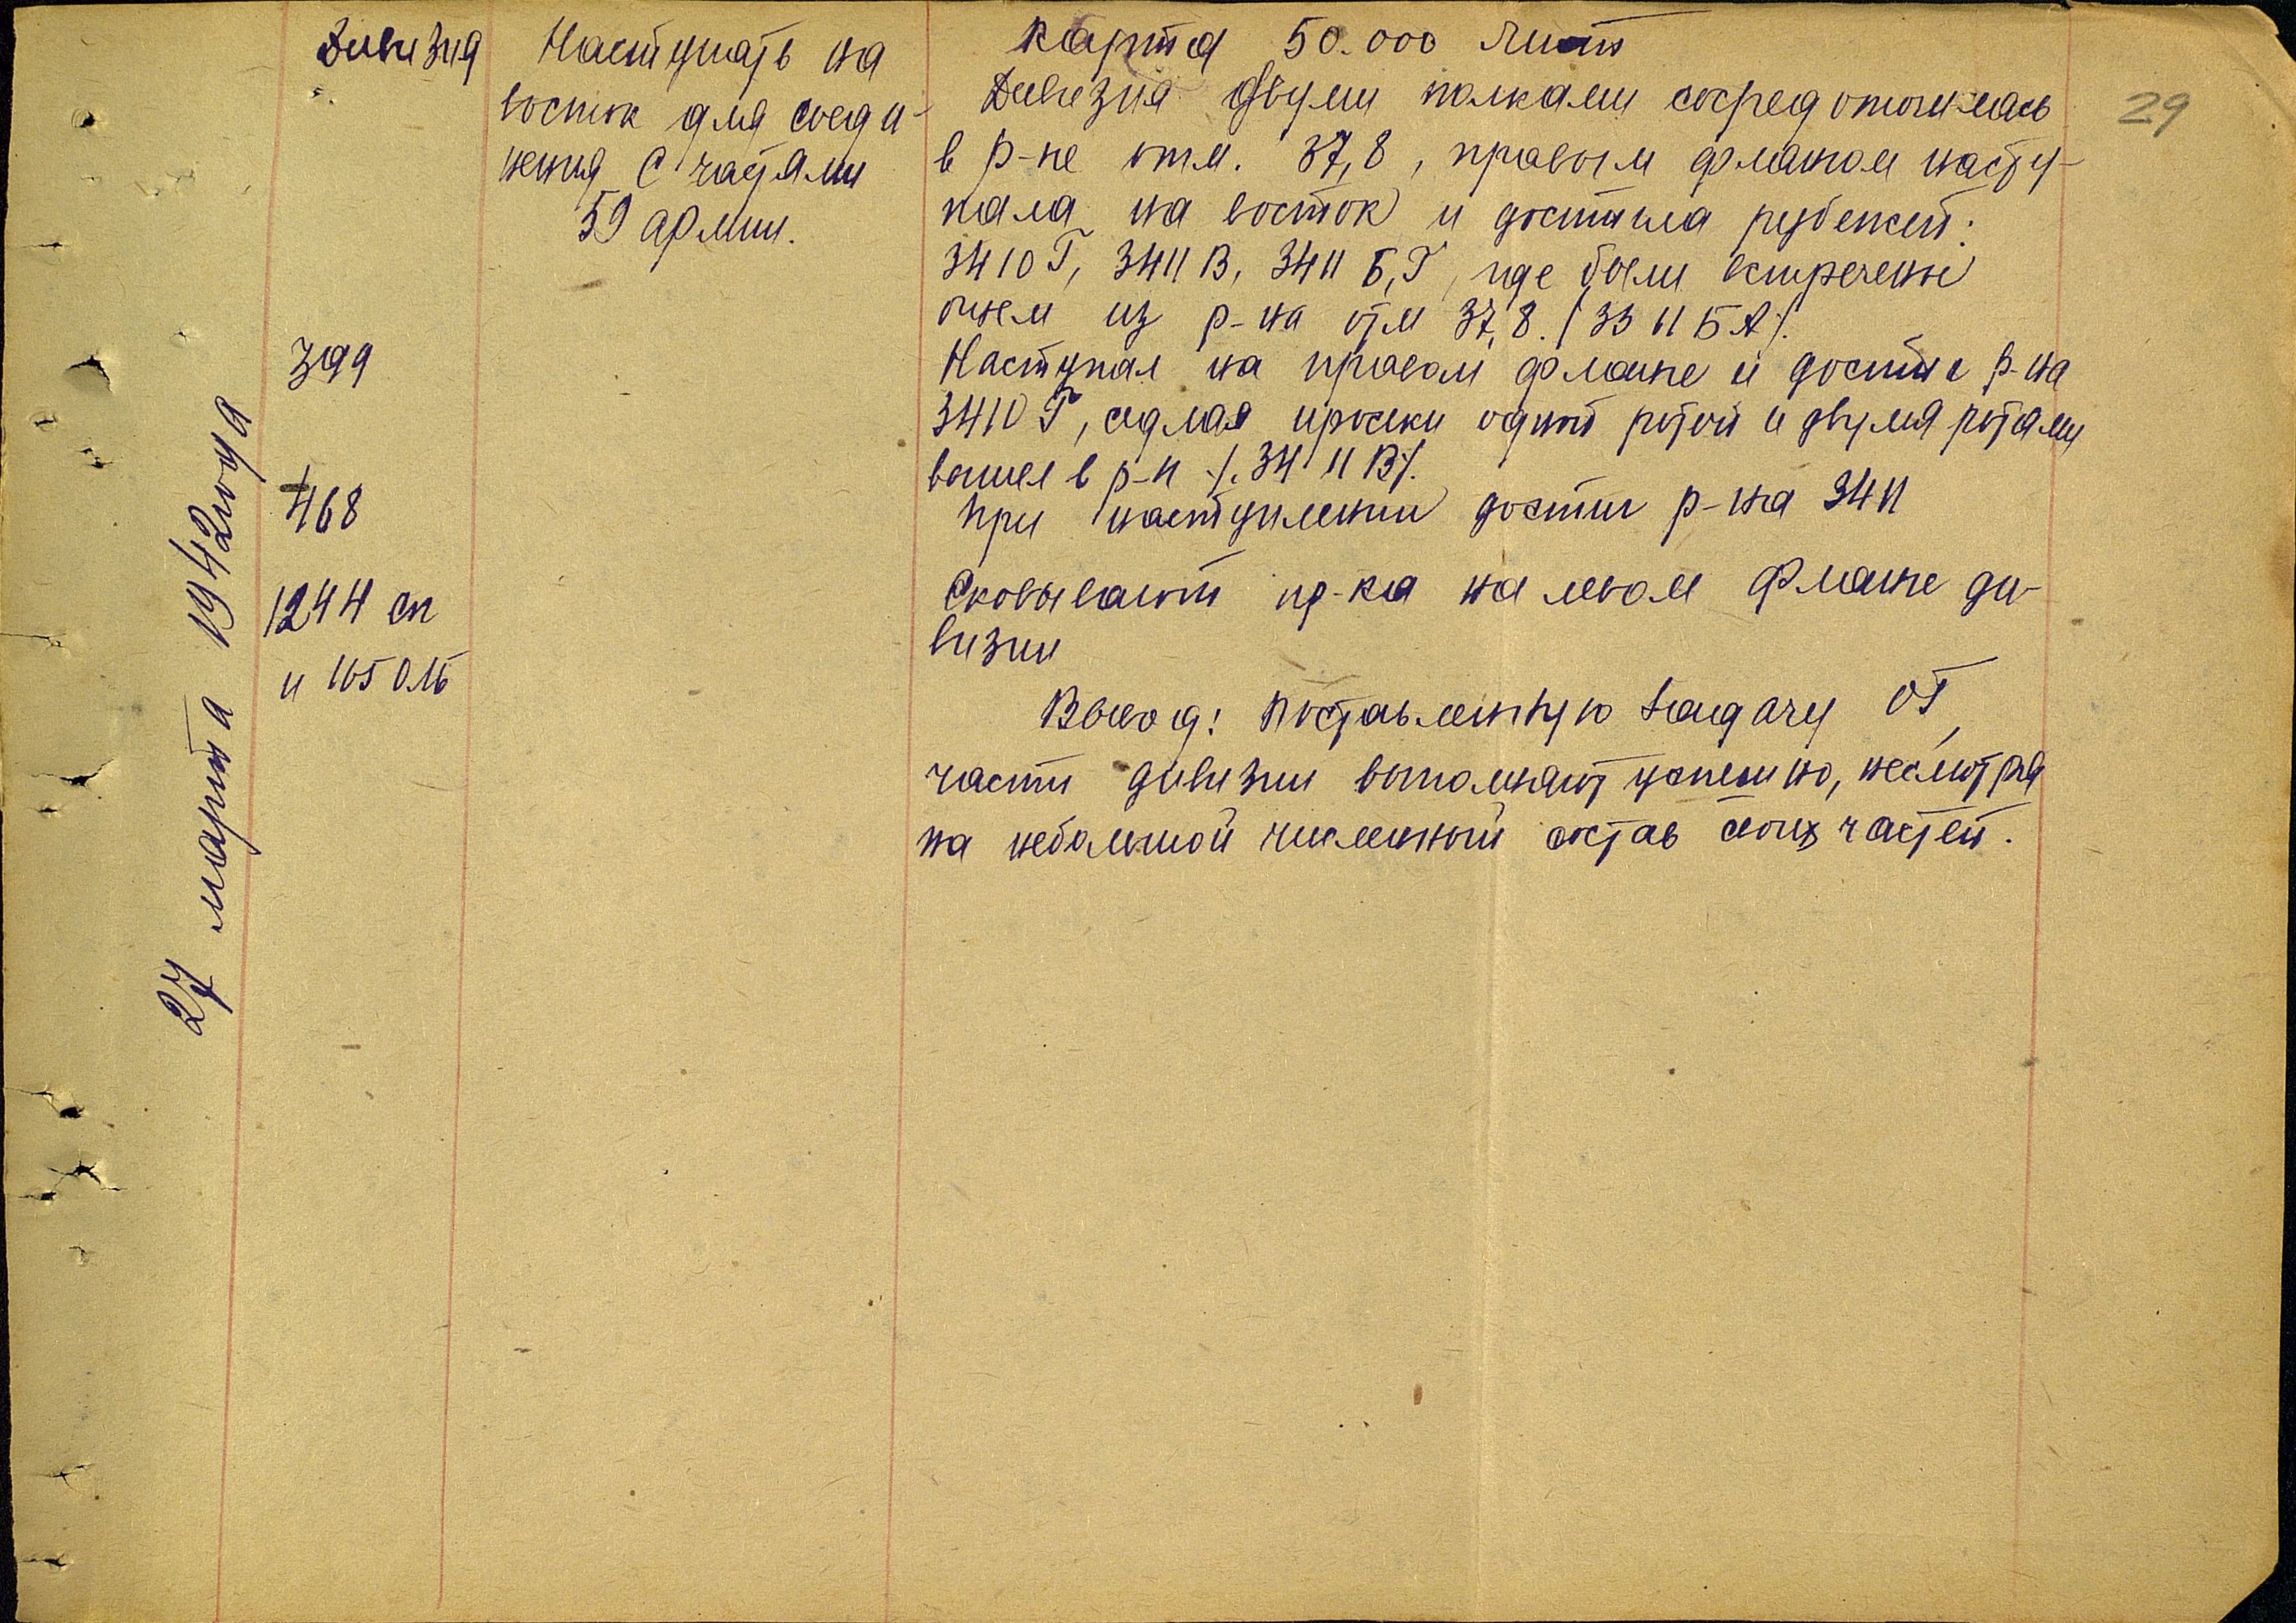 27 марта 1942 года
Дивизия
Наступать на
восток для соеди-
нения с частями
59 армии.
399
468
1244 сп
и 165 ОЛБ
Карта 50.000 лист
Дивизия двумя полками сосредоточилась
в р-не отм. 37,8, правым фланом насту-
пала на восток и достигла рубежей:
3410 Г, 3411 В, 3411 Б, Г, где были встречены
огнем из р-на отм 37,8. /3311 БА/.
Наступал на правом фланге и достиг р-на
3410 Г, седлая просеки одной ротой и двумя ротами
вышел в р-н /.3411 В/.
При наступлении достиг р-на 3411
Сковывают пр-ка на левом фланге ди-
визии
Вывод: Поставленную задачу ОГ
части дивизии выполняют успешно, несмотря
на небольшой численный состав своих частей.
29